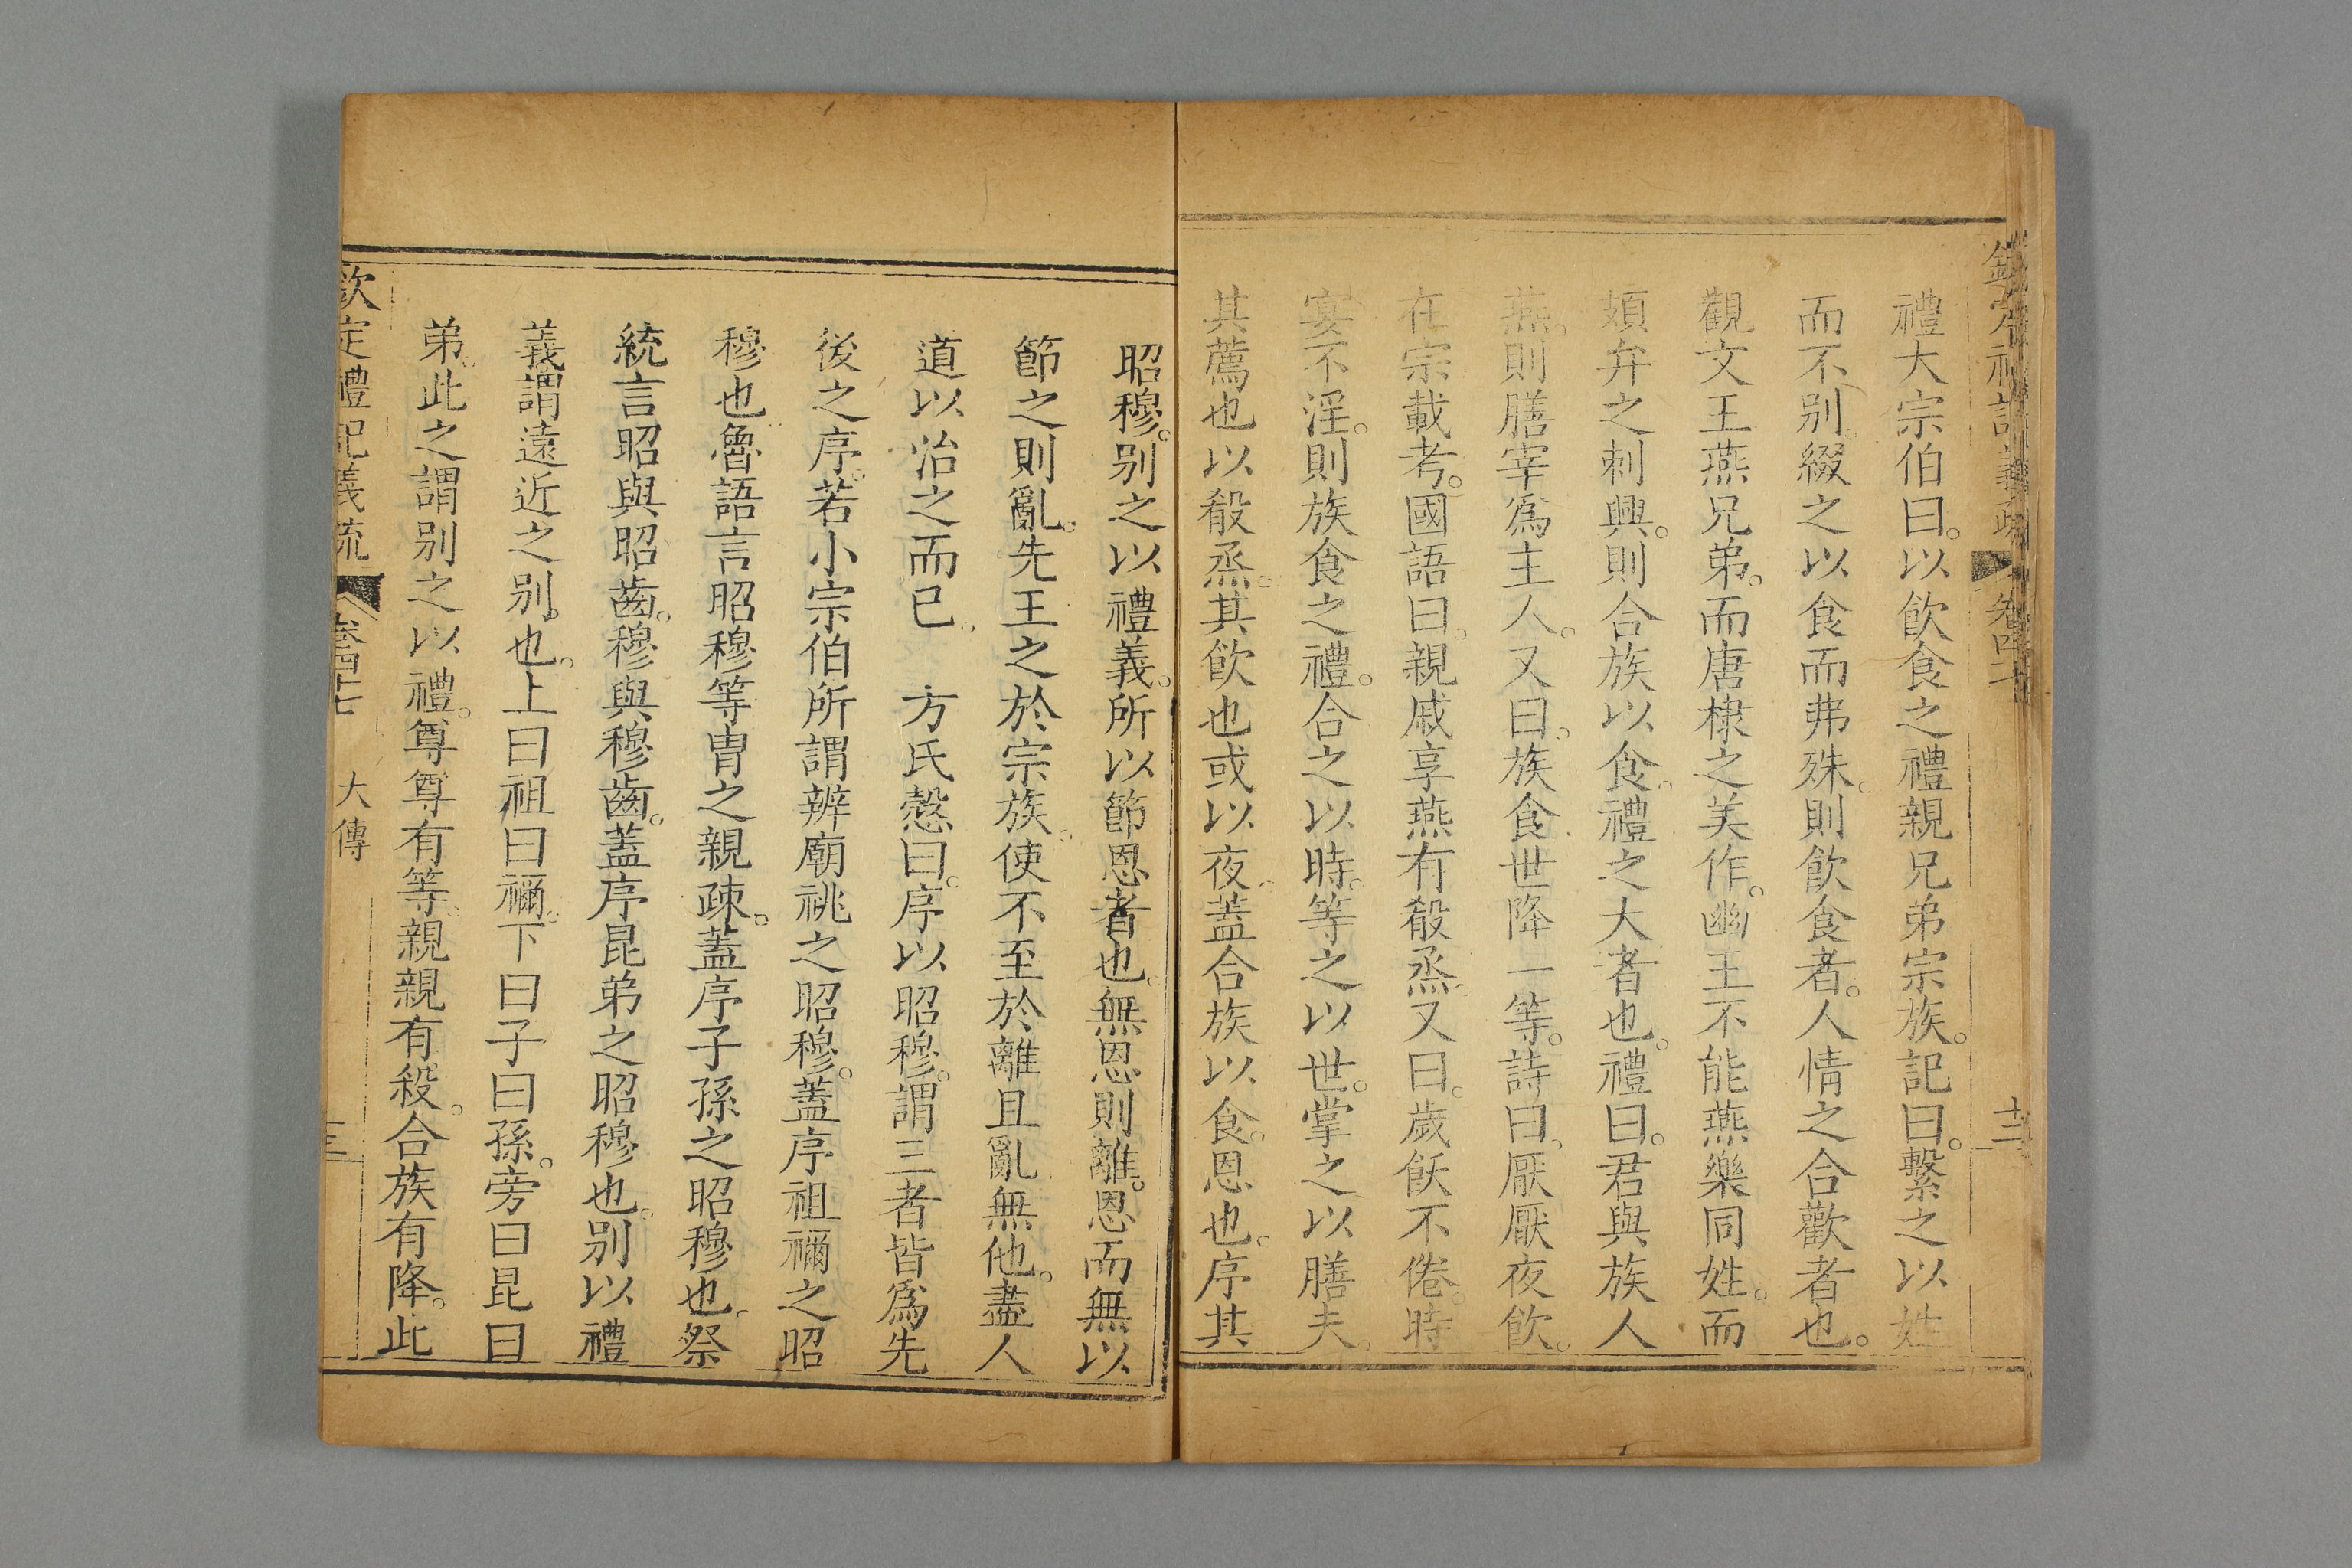 禮大宗伯曰。以飲食之禮親兄弟宗族。記曰。繫之以姓
而不別。綴之以食而弗殊。則飲食者。人情之合歡者也。
觀文王燕兄弟。而唐棣之美作。幽王不能燕樂同姓。而
頍弁之刺興。則合族以食。禮之大者也。禮曰。君與族人
燕。則膳宰爲主人。又曰。族食世降一等。詩曰。厭厭夜飲。
在宗載考。國語曰。親戚享燕有殽烝。又曰。歲飫不倦。時
宴不淫。則族食之禮。合之以時。等之以世。掌之以膳夫。
其薦也以殽烝。其飲也或以夜。蓋合族以食。恩也。序其
昭穆。別之以禮義。所以節恩者也。無恩則離。恩而無以
節之則亂。先王之於宗族。使不至於離且亂無他。盡人
道以治之而已。 方氏慤曰。序以昭穆。謂三者皆爲先
後之序。若小宗伯所謂辨廟祧之昭穆。蓋序祖禰之昭
穆也。魯語言昭穆等胄之親疎。蓋序子孫之昭穆也。祭
統言昭與昭齒。穆與穆齒。蓋序昆弟之昭穆也。別以禮
義。謂遠近之別。也。上曰祖曰禰。下曰子曰孫。旁曰昆曰
弟。此之謂別之以禮。尊尊有等。親親有殺。合族有降。此
欽定禮記義疏 卷四十七 大傳